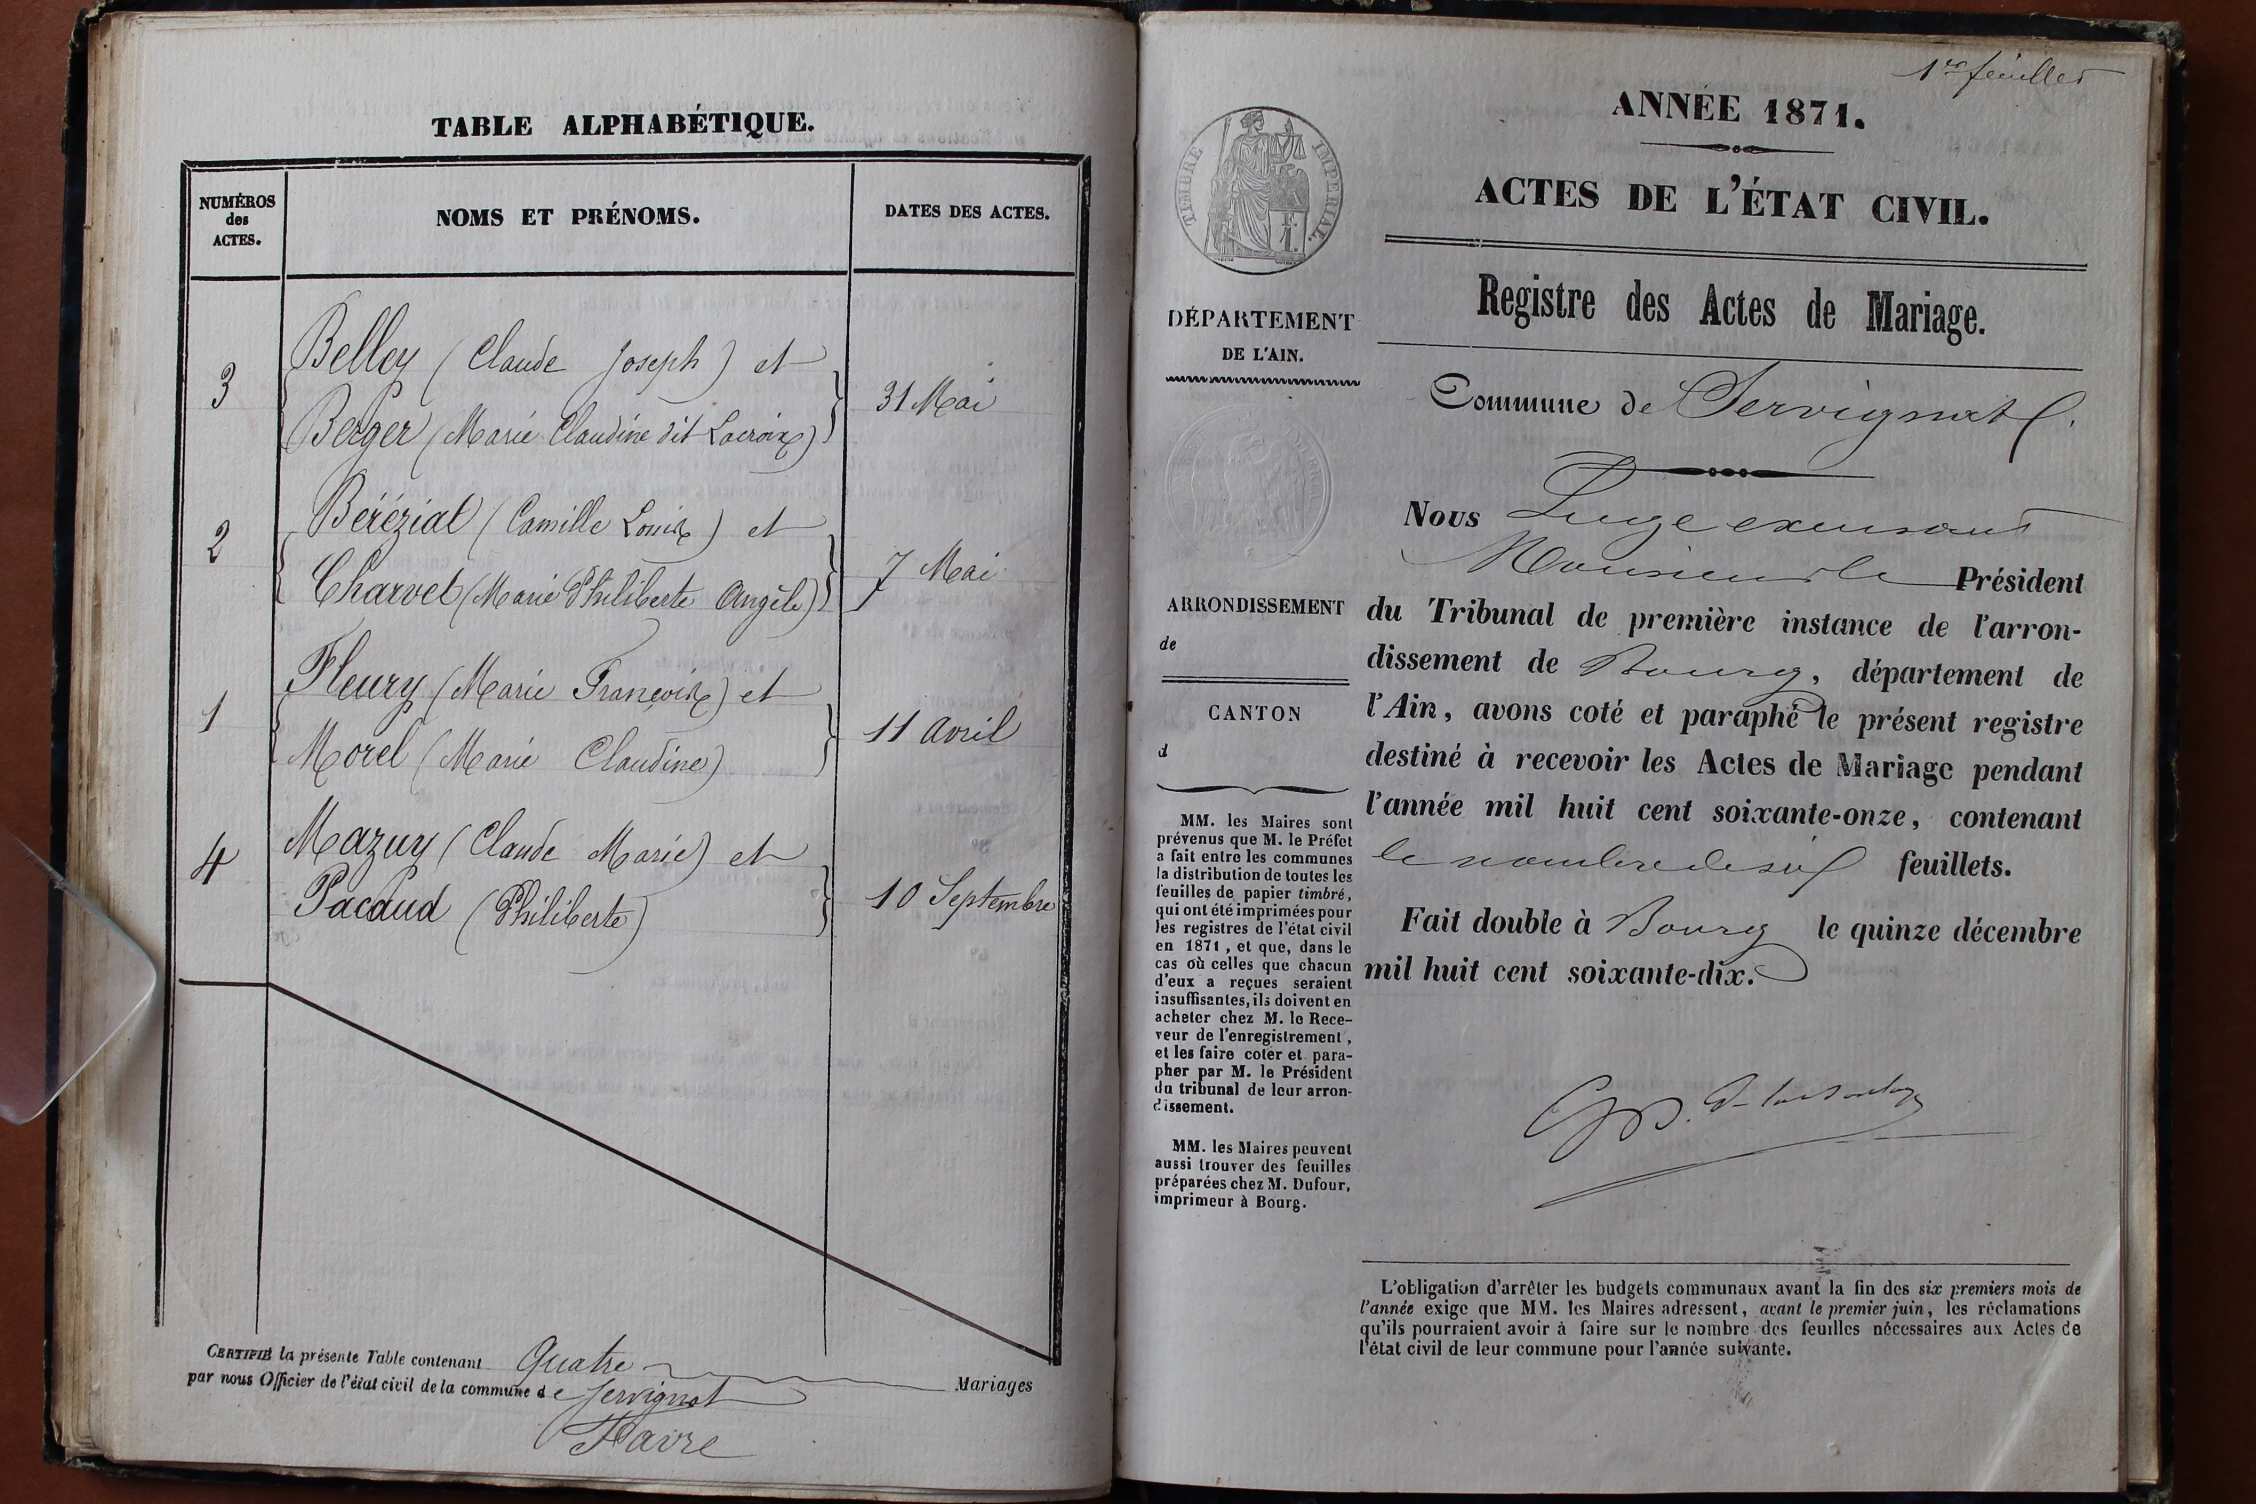 TABLE ALPHABÉTIQUE.
NUMÉROS
des
ACTES.
NOMS ET PRÉNOMS.
DATES DES ACTES.
3
Belley (Claude Joseph) et
Berger (Marie Claudine dit Lacroix)
31 Mai
2
Bérézial (Camille Louis) et
Charvet (Marie Philiberte Angèle)
7 Mai
1
Fleury (Marie François) et
Morel (Marie Claudine)
11 avril
4
Mazuy (Claude Marie) et
Pacaud (Philiberte)
10 Septembre
CERTIFIÉ la présente Table contenant Quatre Mariages
par nous Officier de l'état civil de la commune de Servignat
Favre
1er feuillet
TIMBRE IMPERIAL.
DÉPARTEMENT
DE L'AIN.
ARRONDISSEMENT
de
CANTON
d
MM. les Maires sont
prévenus que M. le Préfet
a fait entre les communes
la distribution de toutes les
feuilles de papier timbré,
qui ont été imprimées pour
les registres de l'état civil
en 1871, et que, dans le
cas où celles que chacun
d'eux a reçues seraient
insuffisantes, ils doivent en
acheter chez M. le Rece-
veur de l'enregistrement,
et les faire coter et para-
pher par M. le Président
du tribunal de leur arron-
dissement.
MM. les Maires peuvent
aussi trouver des feuilles
préparées chez M. Dufour,
imprimeur à Bourg.
ANNÉE 1871.
ACTES DE L'ÉTAT CIVIL.
Registre des Actes de Mariage.
Commune de Servignat
Nous Juge
Monsieur le Président
du Tribunal de première instance de l'arron-
dissement de Bourg, département de
l'Ain, avons coté et paraphé le présent registre
destiné à recevoir les Actes de Mariage pendant
l'année mil huit cent soixante-onze, contenant
le nombre de six feuillets.
Fait double à Bourg le quinze décembre
mil huit cent soixante-dix.
L'obligation d'arrêter les budgets communaux avant la fin des six premiers mois de
l'année exige que MM. les Maires adressent, avant le premier juin, les réclamations
qu'ils pourraient avoir à faire sur le nombre des feuilles nécessaires aux Actes de
l'état civil de leur commune pour l'année suivante.